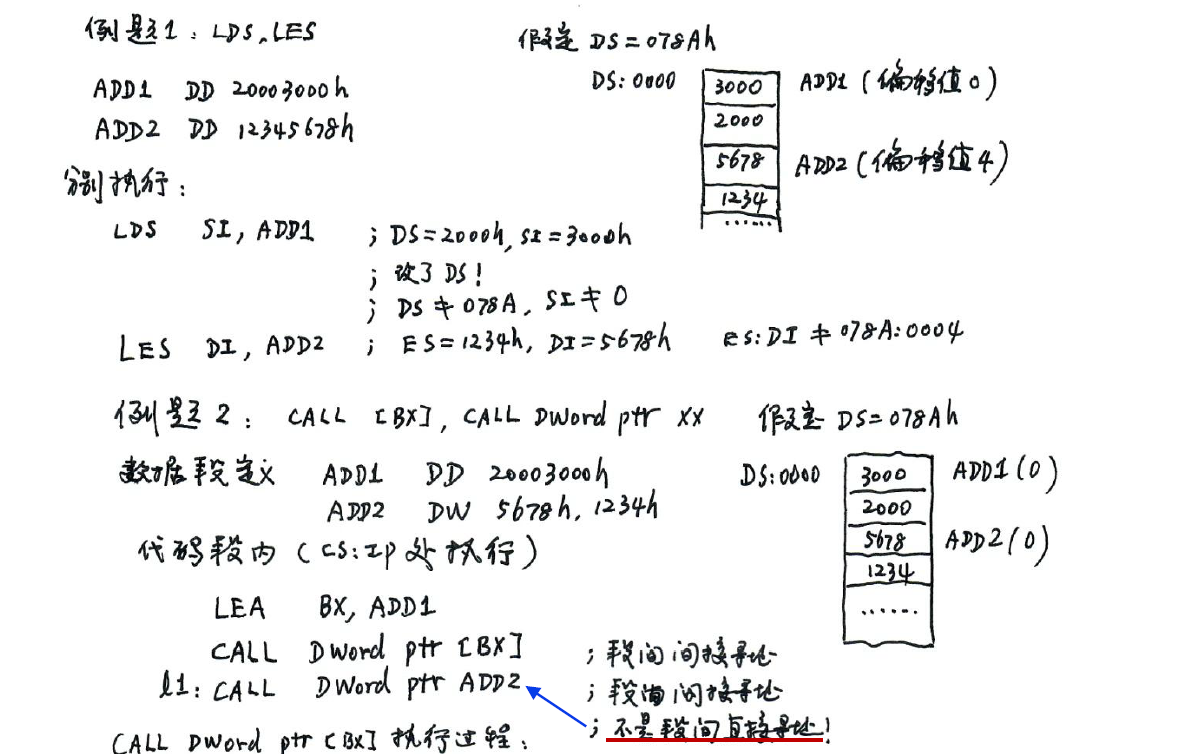 例题1：LDS、LES
假定 DS=078Ah
ADD1 DD 20003000h
ADD2 DD 12345678h
DS:0000 3000 ADD1(偏移值0)
2000
5678 ADD2(偏移值4)
1234
......
分别执行：
LDS SI, ADD1 ; DS=2000h, SI=3000h
; 改了DS!
; DS≠078A, SI≠0
LES DI, ADD2 ; ES=1234h, DI=5678h ES:DI≠078A:0004
例题2： CALL [BX], CALL DWord ptr XX 假定 DS=078Ah
数据段定义 ADD1 DD 20003000h
ADD2 DW 5678h, 1234h
DS:0000 3000 ADD1(0)
2000
5678 ADD2(0)
1234
......
代码段内(CS:IP处执行)
LEA BX, ADD1
CALL DWord ptr [BX] ;段间间接寻址
l1: CALL DWord ptr ADD2 ;段间间接寻址
;不是段间直接寻址!
CALL DWord ptr [BX] 执行过程：